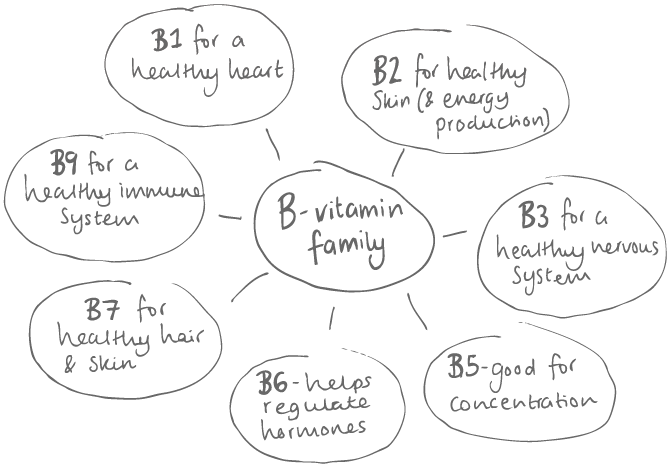 B1 for a
healthy heart
B2 for healthy
Skin (& energy
production)
B9 for a
healthy immune
System
B-vitamin
family
B3 for a
healthy nervous
System
B7 for
healthy hair
& Skin
B6-helps
regulate
hormones
B5-good for
concentration